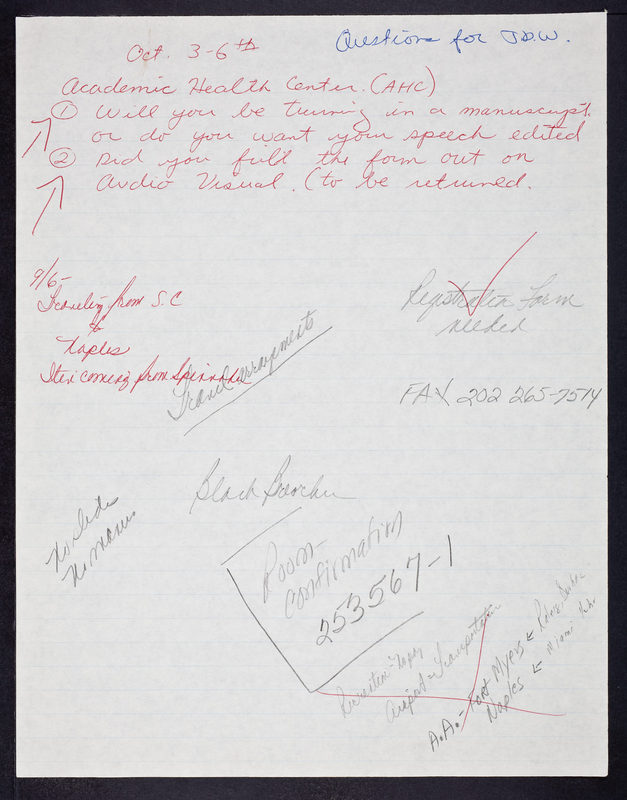 Questions for J.D.W.
Oct. 3-6th
Academic Health Center. (AHC)
① Will you be turning in a manuscript.
or do you want your speech edited
② Did you fill the form out on
Audio Visual. (to be returned.
9/6-
Traveling from S.C
to
Naples
Iten coming from
Registration Form
needed
Travel arrangements
FAX 202 265-7514
Black
No
No
Room-
confirmation
253567-1
Airport - Transportation
A.A. - Fort Myers
Naples ← Miami